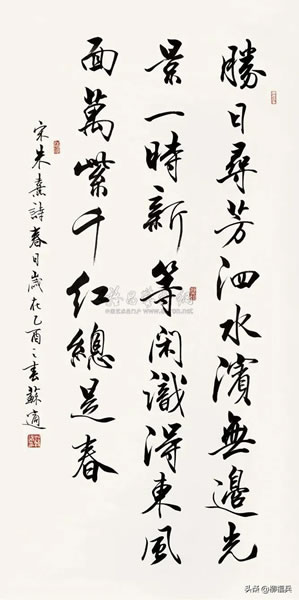 勝日尋芳泗水濱無邊光
景一時新等閑識得東風
面萬紫千红總是春
宋朱熹詩春日歲在乙酉之春蘇適
头条@柳振兵